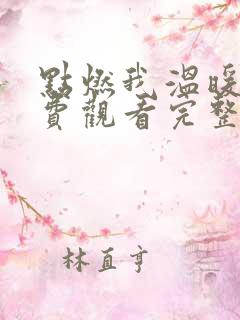 點燃我溫暖
費觀看完整
林直亨